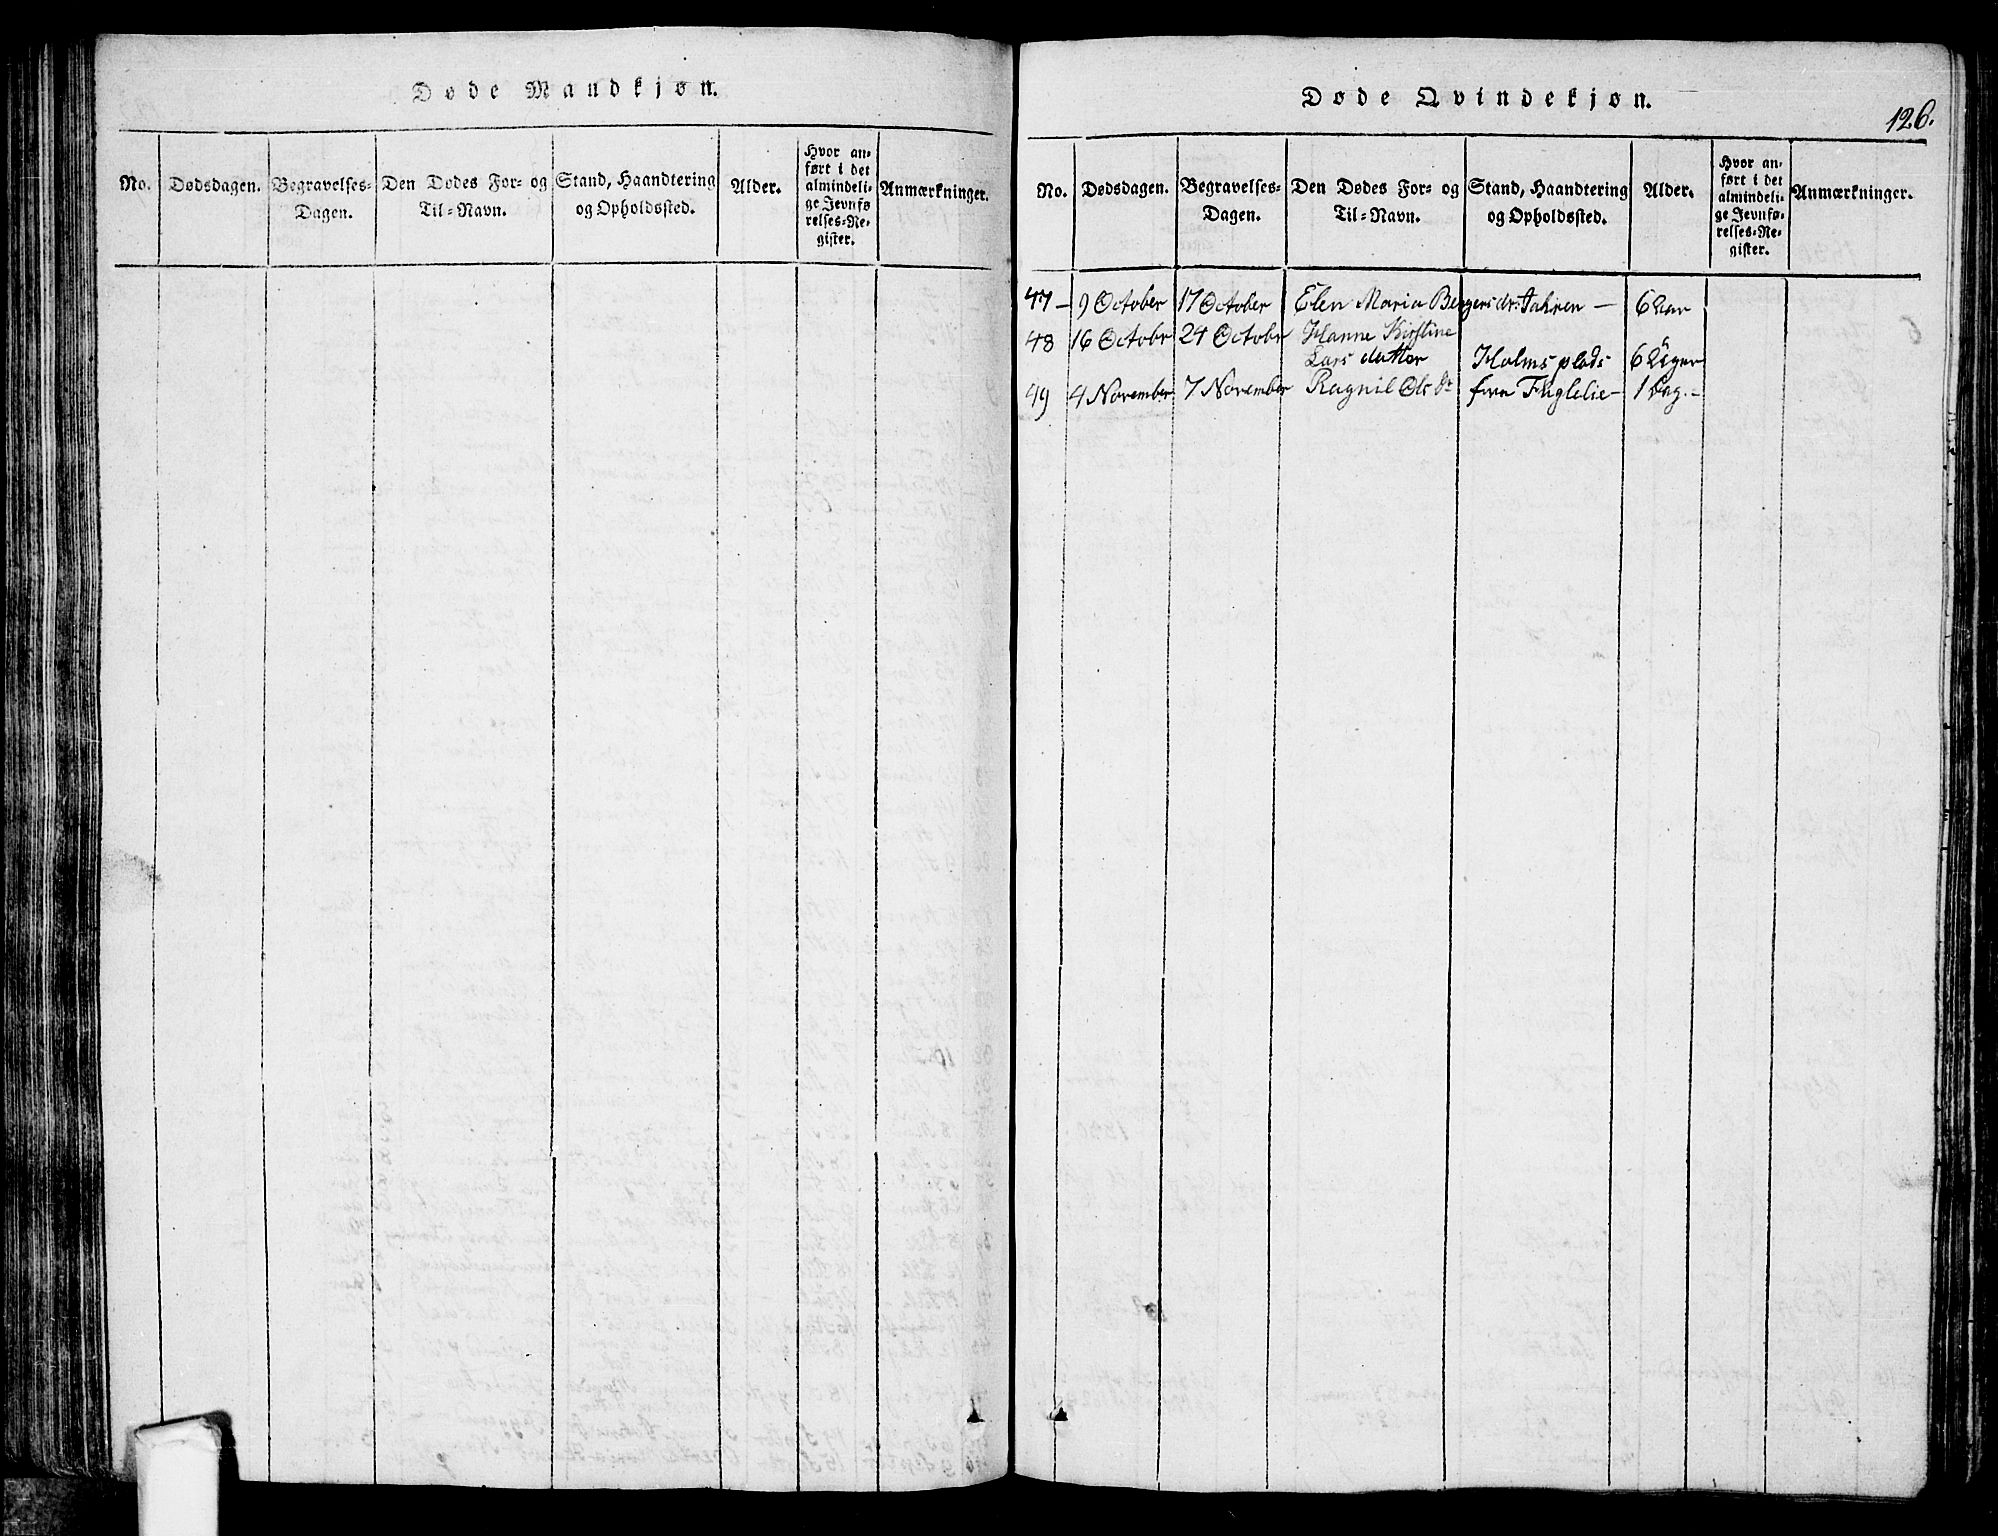 Døde Mandkjøn.
No.
Dødsdagen.
Begravelses-
Dagen.
Den Dødes For- og
Til-Navn.
Stand, Haandtering
og Opholdssted.
Alder.
Hvor an-
ført i det
almindeli-
ge Jevnfø
relses-Re-
gister.
Anmærkninger.
Døde Qvindekjøn.
126.
No.
Dødsdagen.
Begravelses-
Dagen.
Den Dødes For- og
Til-Navn.
Stand, Haandtering
og Opholdssted.
Alder.
Hvor an-
ført i det
almindeli-
ge Jevnfø-
relses-Re-
gister.
Anmærkninger.
47 – 9 October 17 October Elen Maria Bergersdr: Jahren – 6 Aar
48 16 Octobr 24 Octobr Hanne Kirstine
Lars datter Holms plads 6 Uger
49 4 November 7 November Ragnil Ols Dr fra Fuglelie – 1 Dag. –